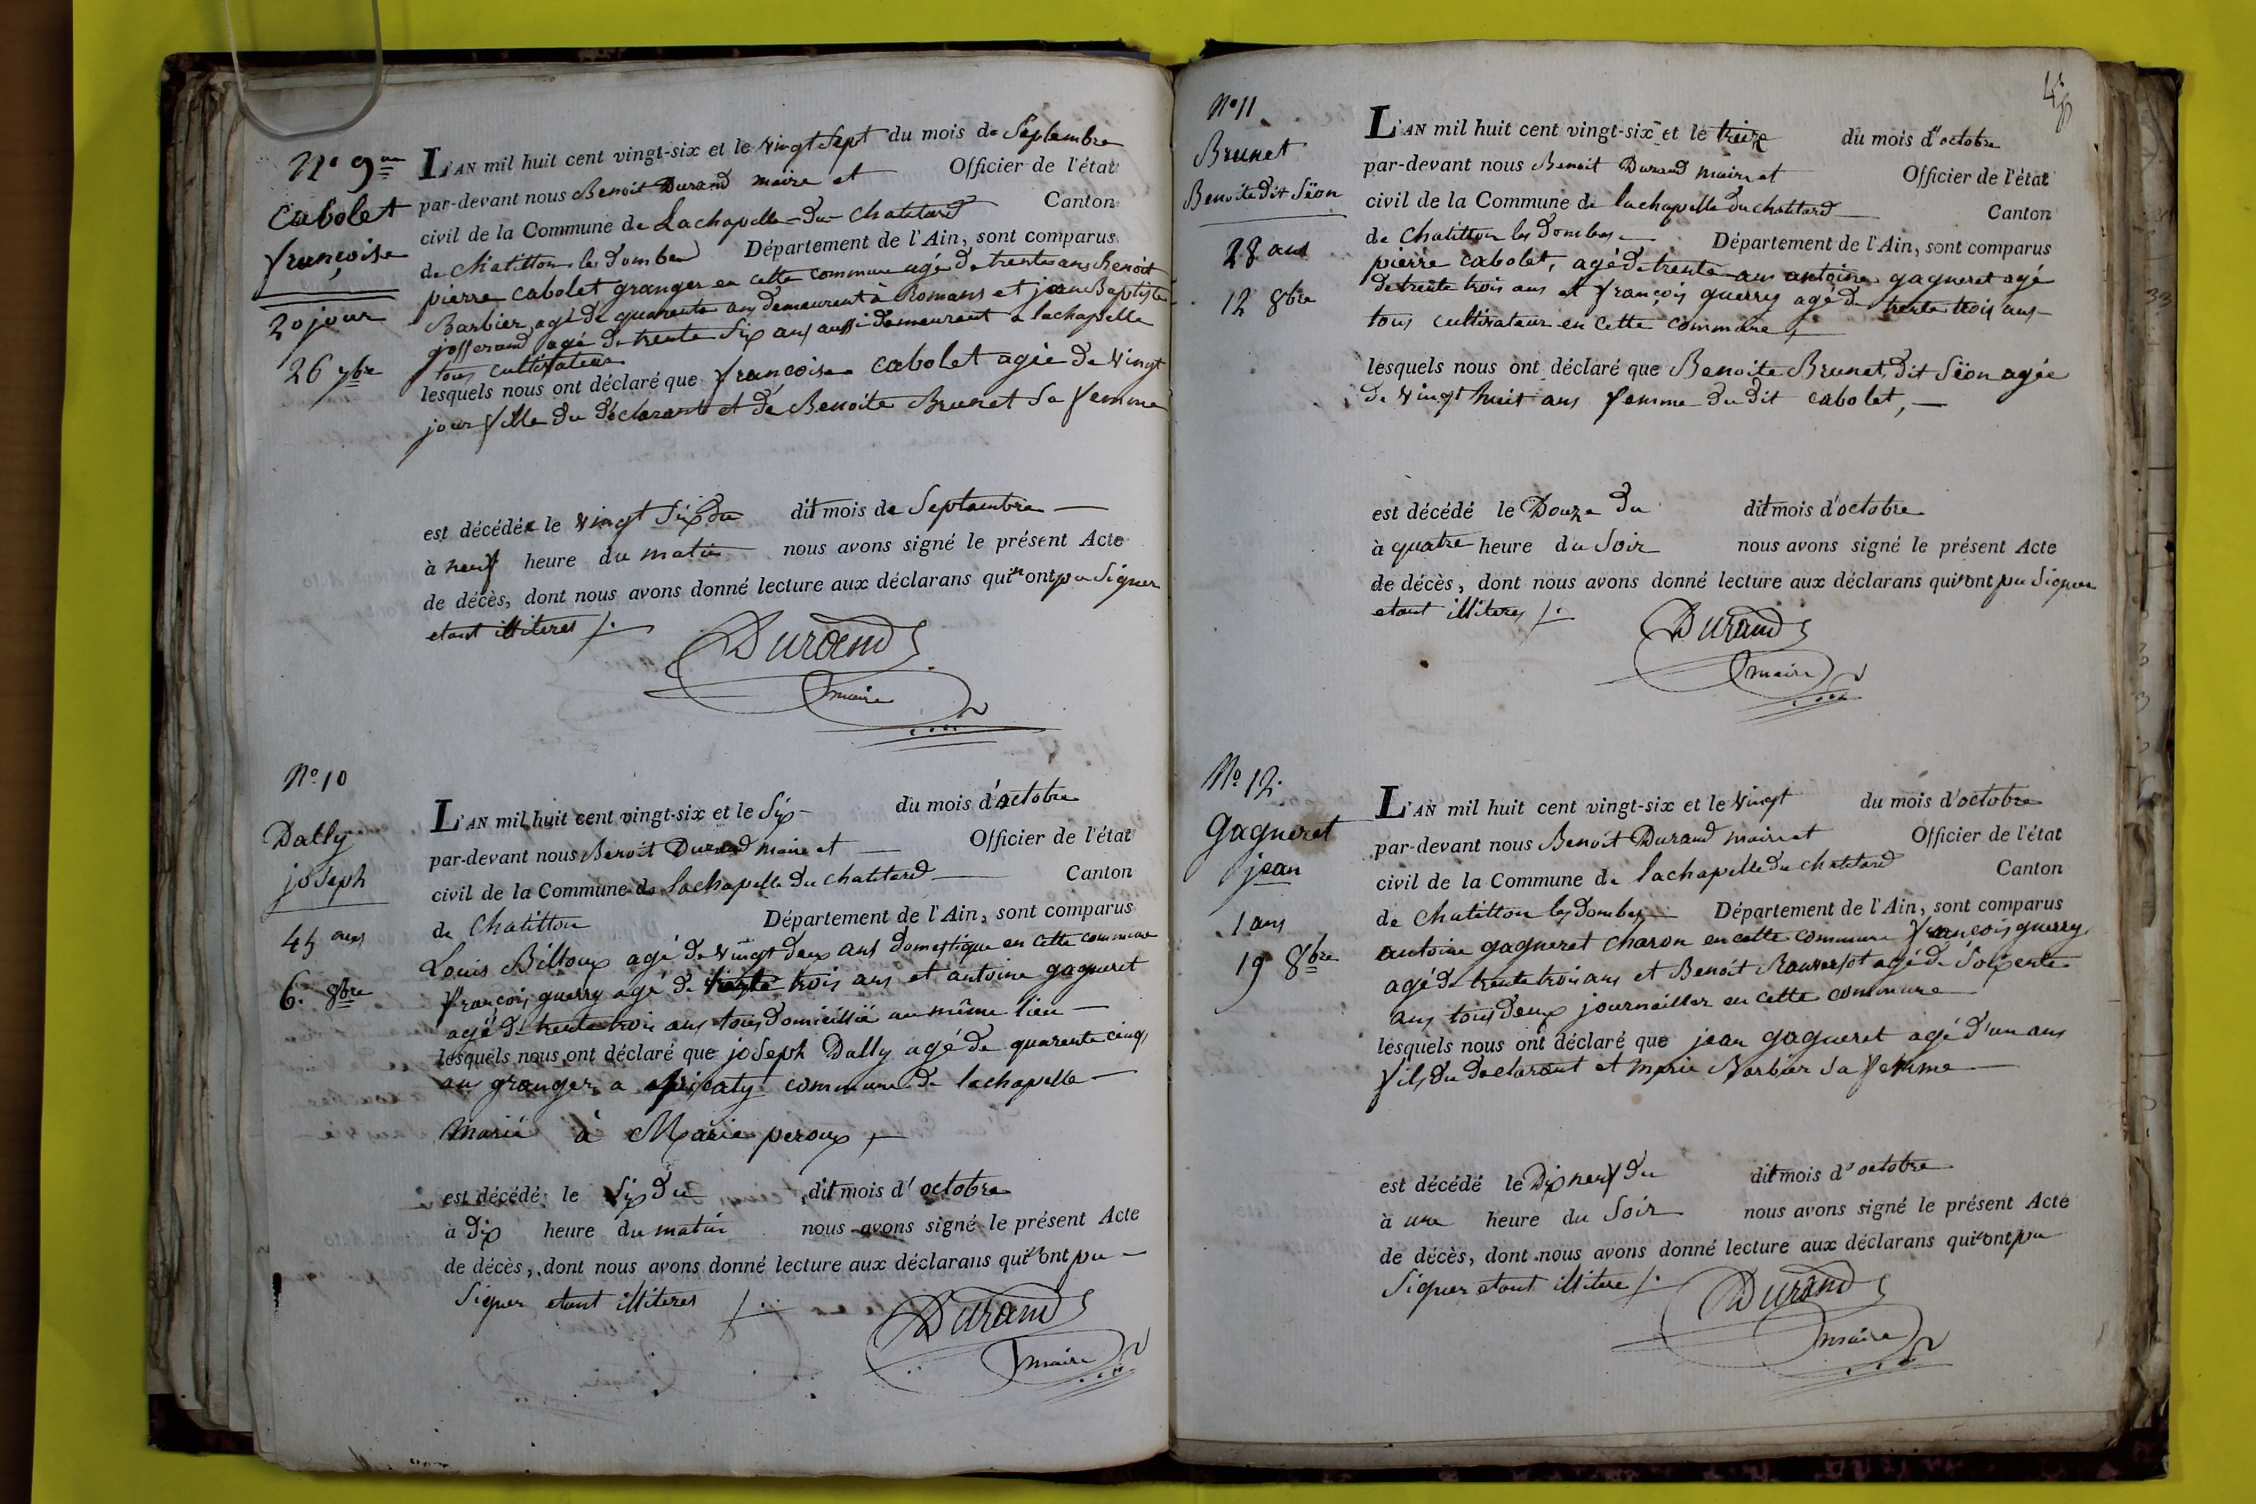 N° 9me
Cabolet
françoise
20 jour
26 7bre
L'AN mil huit cent vingt-six et le vingt Sept du mois de Septembre
par-devant nous Benoit Durand maire et Officier de l'état
civil de la Commune de Lachapelle-du-Chatelard Canton
de Chatillon les Dombes Département de l'Ain, sont comparus
pierre Cabolet granger en cette commune agé de trente ans Benoit
Barbier agé de quarente ans demeurent à Romans et jean Baptiste
josserand agé de trente Six ans aussi demeurent a lachapelle
tous cultivateurs
lesquels nous ont déclaré que françoise Cabolet agée de Vingt
jour fille du déclarant et de Benoite Brunet Sa femme
est décédée le vingt Six du dit mois de Septembre
à neuf heure du matin nous avons signé le présent Acte
de décès, dont nous avons donné lecture aux déclarans qui n'ont pu Signer
etant illiteres
Durand
maire
N° 10
Dally
joseph
45 ans
6. 8bre
L'AN mil huit cent vingt-six et le Six du mois d'octobre
par-devant nous Benoit Durand maire et Officier de l'état
civil de la Commune de lachapelle du chatelard Canton
de Chatillon Département de l'Ain, sont comparus
Louis Billoux agé de vingt deux ans domestique en cette commune
françois guerry agé de trente trois ans et antoine gagneret
agé de trente trois ans tous domicillié au même lieu
lesquels nous ont déclaré que joseph Dally agé de quarente cinq
ans granger a commune de lachapelle
Marié à Marie peroux
est décédé le Six du dit mois d'octobre
à Dix heure du matin nous avons signé le présent Acte
de décès, dont nous avons donné lecture aux déclarans qui n'ont pu
Signer etant illiteres
Durand
maire
45
N° 11
Brunet
Benoite dit Sïon
28 ans
12 8bre
L'AN mil huit cent vingt-six et le treize du mois d'octobre
par-devant nous Benoit Durand maire et Officier de l'état
civil de la Commune de lachapelle du chatelard Canton
de Chatillon les Dombes Département de l'Ain, sont comparus
pierre Cabolet, agé de trente ans antoine gagneret agé
de trente trois ans et françois guerry agé de trente trois ans
tous cultivateur en cette commune
lesquels nous ont déclaré que Benoite Brunet, dit Sïon agée
de vingt huit ans femme du dit Cabolet,
est décédé le Douze du dit mois d'octobre
à quatre heure du Soir nous avons signé le présent Acte
de décès, dont nous avons donné lecture aux déclarans qui n'ont pu Signer
etant illiteres
Durand
maire
N° 12.
Gagneret
jean
1 ans
19 8bre
L'AN mil huit cent vingt-six et le vingt du mois d'octobre
par-devant nous Benoit Durand maire et Officier de l'état
civil de la Commune de lachapelle du chatelard Canton
de Chatillon les Dombes Département de l'Ain, sont comparus
antoine gagneret charon en cette commune françois guerry
agé de trente trois ans et Benoit agé de Soixente
ans tous deux journailler en cette commune
lesquels nous ont déclaré que jean gagneret agé d'un ans
fils du declarant et marie Barbier Sa femme
est décédé le Dix neuf du dit mois d'octobre
à une heure du Soir nous avons signé le présent Acte
de décès, dont nous avons donné lecture aux déclarans qui n'ont pu
Signer etant illitere
Durand
maire